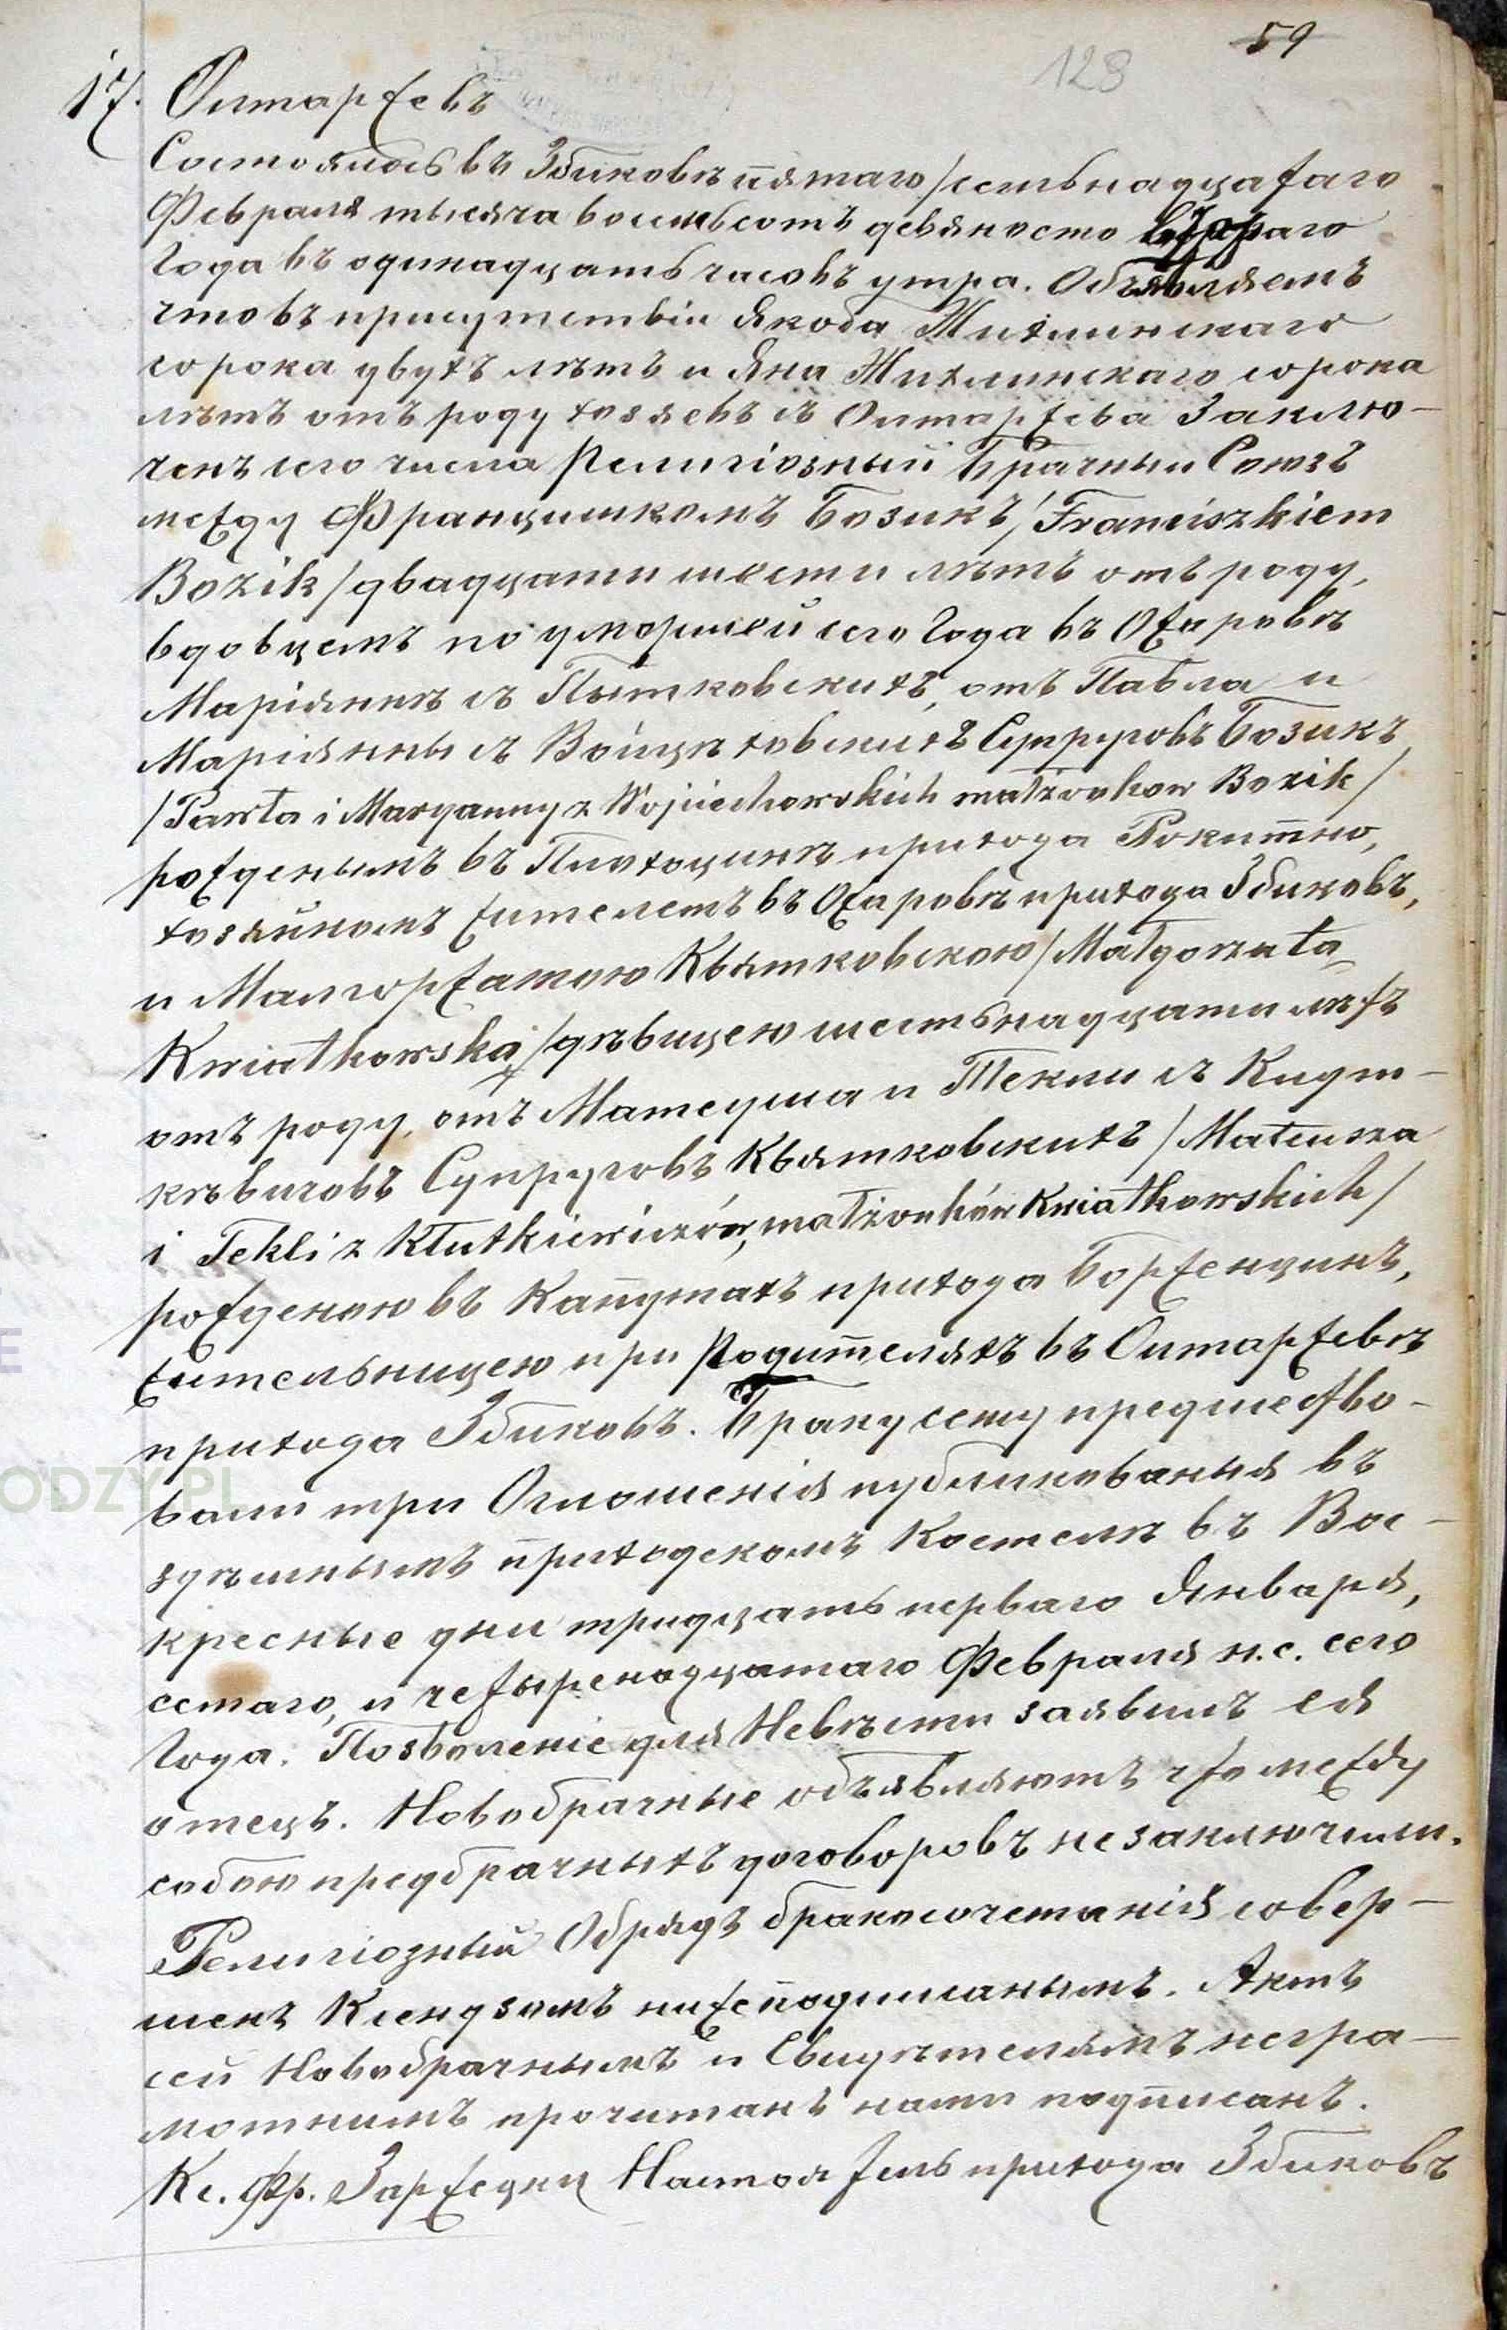 59
128
17. Олтаржевъ
Состоялось въ Збиковѣ пятаго/семьнадцатаго
Февраля тысяча восемьсотъ девяносто втораго
Года въ одинадцать часовъ утра. Объявляемъ
что въ присутствіи Якова Михлинскаго
сорока двухъ лѣтъ и Яна Михлинскаго сорока
лѣтъ отъ роду хозяевъ съ Олтаржева Заклю-
ченъ сего числа Религіозный Брачный Союзъ
между Францишкомъ Бозикъ /Franciszkiem
Bozik/ двадцати шести лѣтъ отъ роду,
вдовцемъ по уморшей сего Года въ Ожаровѣ
Маріяннѣ съ Пытковскихъ, отъ Павла и
Маріянны съ Войцѣховскихъ Супруговъ Бозикъ,
/Pawła i Maryanny z Wojciechowskich małżonkow Bozik/
рожденымъ въ прихода Рокитно,
хозяйномъ жителемъ въ Ожаровѣ прихода Збиковъ,
и Малгоржатою Квятковскою /Małgorzatą
Kwiatkowską/ дѣвицею шестьнадцати лѣтъ
отъ роду, отъ Матеуша и Текли съ Клут-
кѣвичовъ Супруговъ Квятковскихъ /Mateusza
i Tekli z Kłutkiewiczów, małżonków Kwiatkowskich/
рожденою въ Капутахъ прихода Борженцинъ,
жительницею при Родителяхъ въ Олтаржевѣ
прихода Збиковъ. Браку сему предшество-
вали три Оглошенія публикованыя въ
здѣшнымъ приходскомъ Костелѣ въ Вос-
кресные дни тридцать перваго Января,
семаго, и четыренадцатаго Февраля н.с. сего
Года. Позволеніе для Невѣсты заявилъ ея
отецъ. Новобрачные объявляютъ что между
собою предбрачныхъ договоровъ не заключили.
Религіозный Обрядъ бракосочетанія совер-
шенъ Ксендзомъ нижеподписанымъ. Актъ
сей Новобрачнымъ и Свидѣтелямъ негра-
мотнымъ прочитанъ нами подписанъ.
Кс. Фр. Заржецки Настоятель прихода Збиковъ
ODZY.PL